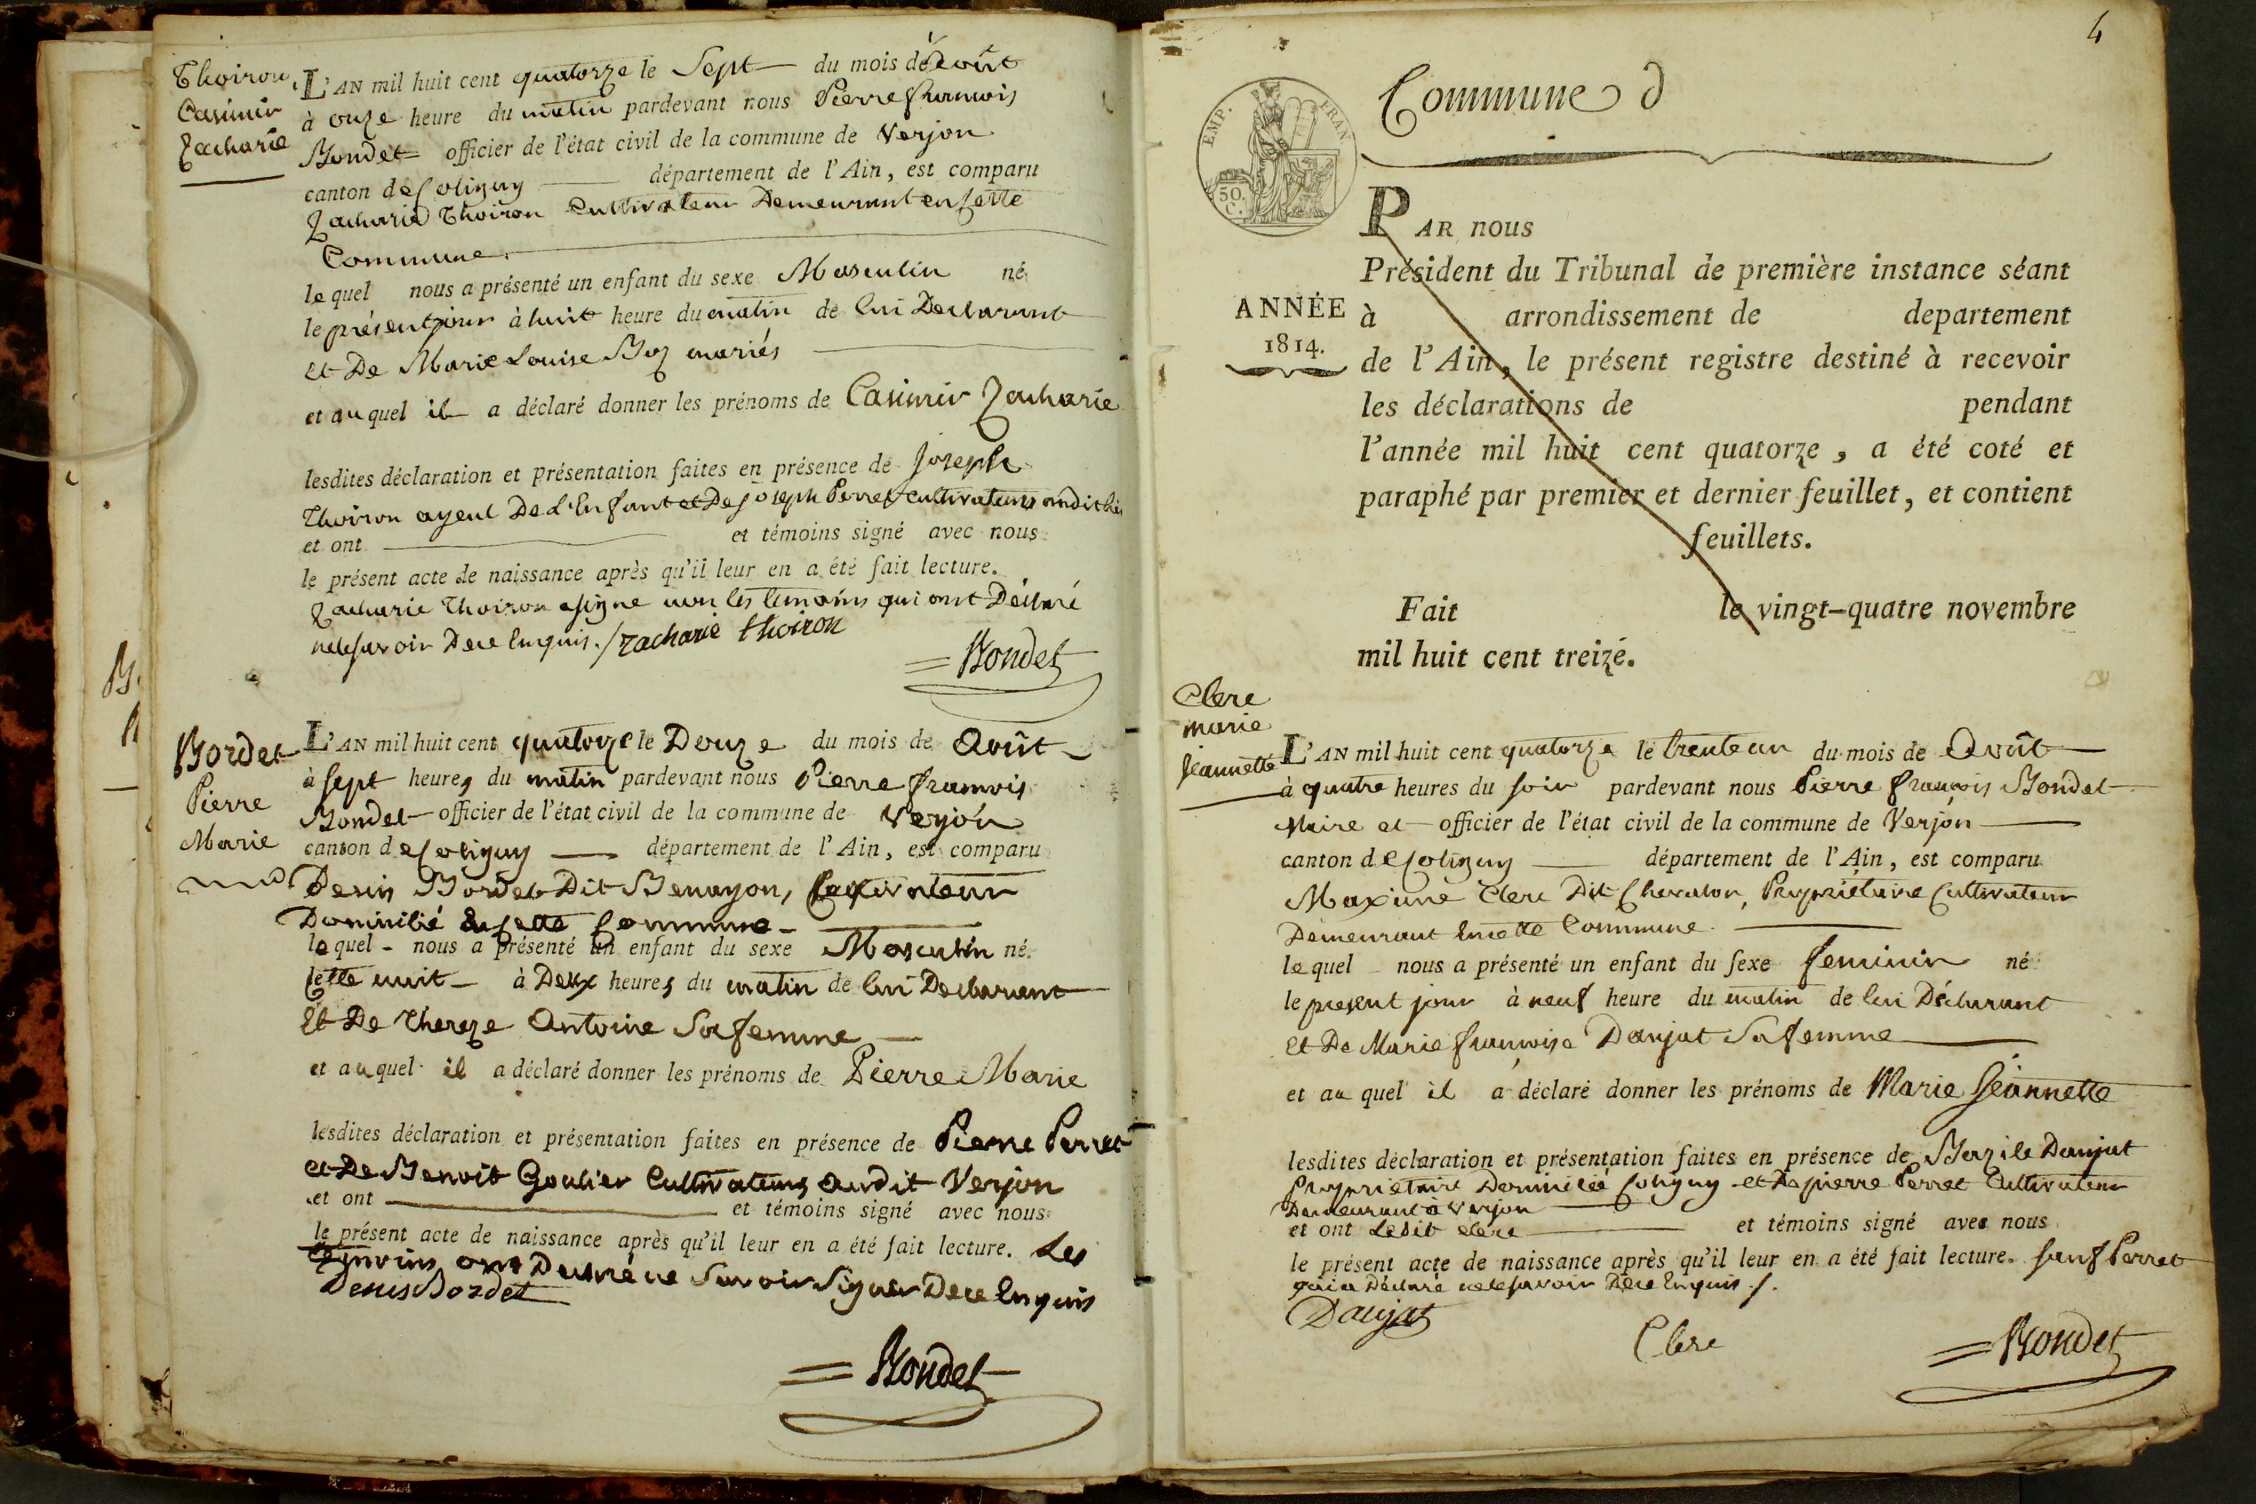 Thoiron
Casimir
Zacharie
L'AN mil huit cent quatorze le Sept du mois d'Août
à onze heure du matin pardevant nous Pierre François
Bondet officier de l'état civil de la commune de Verjon
canton de Coligny département de l'Ain, est comparu
Zacharie Thoiron Cultivateur Demeurant en Cette
Commune
lequel nous a présenté un enfant du sexe Masculin né
le présent jour à huit heure du matin de lui Declarant
et De Marie Louise Boz mariés
et au quel il a déclaré donner les prénoms de Casimir Zacharie
lesdites déclaration et présentation faites en présence de Joseph
Thoiron ayeul De L'Enfant et De Joseph Perret Cultivateurs audit lieu
et ont et témoins signé avec nous
le présent acte de naissance après qu'il leur en a été fait lecture.
Zacharie Thoiron a signé non les temoins qui ont Déclaré
ne le savoir De ce Enquis ./ zacharie thoiron
Bondet
Bordet
Pierre
Marie
L'AN mil huit cent quatorze le Douze du mois de Août
à Sept heures du matin pardevant nous Pierre François
Bondet officier de l'état civil de la commune de Verjon
canton de Coligny département de l'Ain, est comparu
Denis Bordet Dit Benayon, Cultivateur
Domicilié En Cette Commune
lequel nous a présenté un enfant du sexe Masculin né
Cette nuit à Deux heures du matin de lui Declarant
Et De Thereze Antoine Sa femme
et au quel il a déclaré donner les prénoms de Pierre Marie
lesdites déclaration et présentation faites en présence de Pierre Perret
et De Benoit Goulier Cultivateurs Audit Verjon
et ont et témoins signé avec nous
le présent acte de naissance après qu'il leur en a été fait lecture. Les
temoins ont Declaré ne Savoir Signer De ce Enquis
Denis Bordet
Bondet
4
Commune d
EMP. FRAN
50.
C.
ANNÉE
1814.
PAR nous
Président du Tribunal de première instance séant
à arrondissement de departement
de l'Ain, le présent registre destiné à recevoir
les déclarations de pendant
l'année mil huit cent quatorze, a été coté et
paraphé par premier et dernier feuillet, et contient
feuillets.
Fait le vingt-quatre novembre
mil huit cent treize.
Clere
marie
Jeannette
L'AN mil huit cent quatorze le trente un du mois de Août
à quatre heures du soir pardevant nous Pierre François Bondet
Maire et officier de l'état civil de la commune de Verjon
canton de Coligny département de l'Ain, est comparu
Maxime Clere Dit Chevalon, Propriétaire Cultivateur
Demeurant En cette Commune
lequel nous a présenté un enfant du sexe feminin né
le present jour à neuf heure du matin de lui Déclarant
et De Marie Françoise Daujat Sa femme
et au quel il a déclaré donner les prénoms de Marie Jeannette
lesdites déclaration et présentation faites en présence de Bazile Daujat
Proprietaire Domicilié Coligny et De pierre Perret Cultivateur
Demeurant à Verjon
et ont Ledit clere et témoins signé avec nous
le présent acte de naissance après qu'il leur en a été fait lecture. sauf Perret
qui a Déclaré ne le savoir De ce Enquis ./.
Daujat
Clere
Bondet